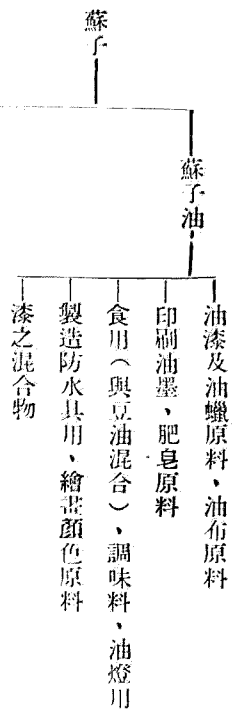 蘇子
蘇子油
油漆及油蠟原料、油布原料
印刷油墨、肥皂原料
食用（與豆油混合）、調味料、油燈用
製造防水具用、繪畫顏色原料
漆之混合物